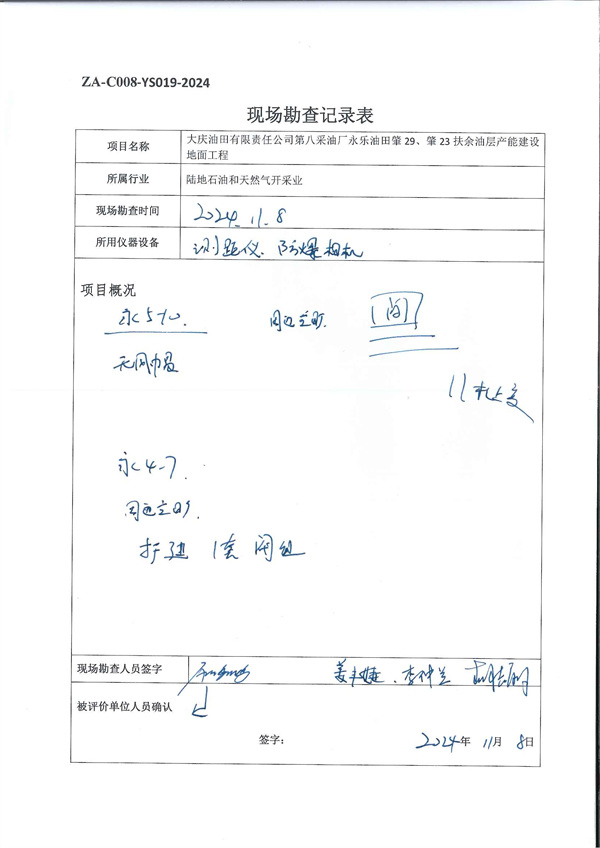 ZA-C008-YS019-2024
现场勘查记录表
项目名称
大庆油田有限责任公司第八采油厂永乐油田肇 29、肇 23 扶余油层产能建设
地面工程
所属行业
陆地石油和天然气开采业
现场勘查时间
2024.11.8
所用仪器设备
测距仪、防爆相机
项目概况
永5-10.
周边空旷.
永4-7.
周边空旷.
扩建 1套 阀组
现场勘查人员签字
被评价单位人员确认
签字：
2024年 11月 8日